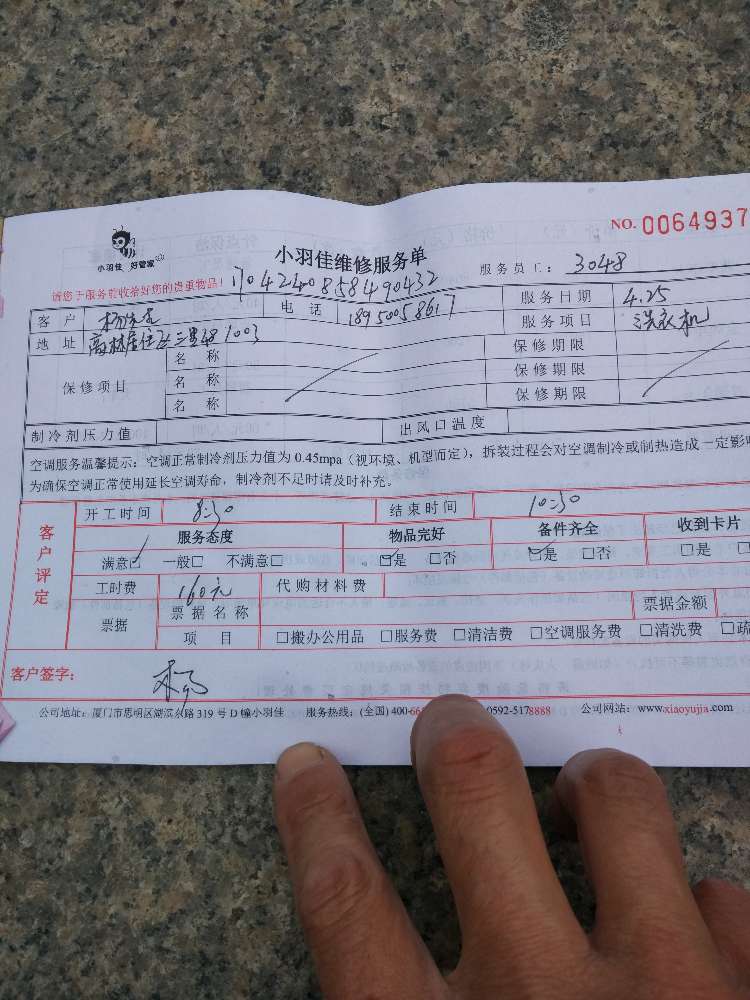 NO. 0064937
小羽佳 好管家
小羽佳维修服务单
服务员工: 3048
请您于服务前收拾好您的贵重物品!
170424085849 0432
客户 杨 电话 18950058617 服务日期 4.25
地址 高林居住区三里48 1003 服务项目 洗衣机
保修项目 名称 保修期限
名称 保修期限
名称 保修期限
制冷剂压力值 出风口温度
空调服务温馨提示:空调正常制冷剂压力值为 0.45mpa(视环境、机型而定),拆装过程会对空调制冷或制热造成一定影
为确保空调正常使用延长空调寿命,制冷剂不足时请及时补充。
客户评定
开工时间 8:30 结束时间 10:30
服务态度 物品完好 备件齐全 收到卡片
满意□ 一般□ 不满意□ □是 □否 □是 □否 □是
工时费 160元 代购材料费
票据 票据名称 票据金额
项目 □搬办公用品 □服务费 □清洁费 □空调服务费 □清洗费 □疏
客户签字: 杨
公司地址:厦门市思明区湖滨东路 319 号 D 幢小羽佳 服务热线:(全国) 400-66 0592-5178888 公司网站:www.xiaoyujia.com